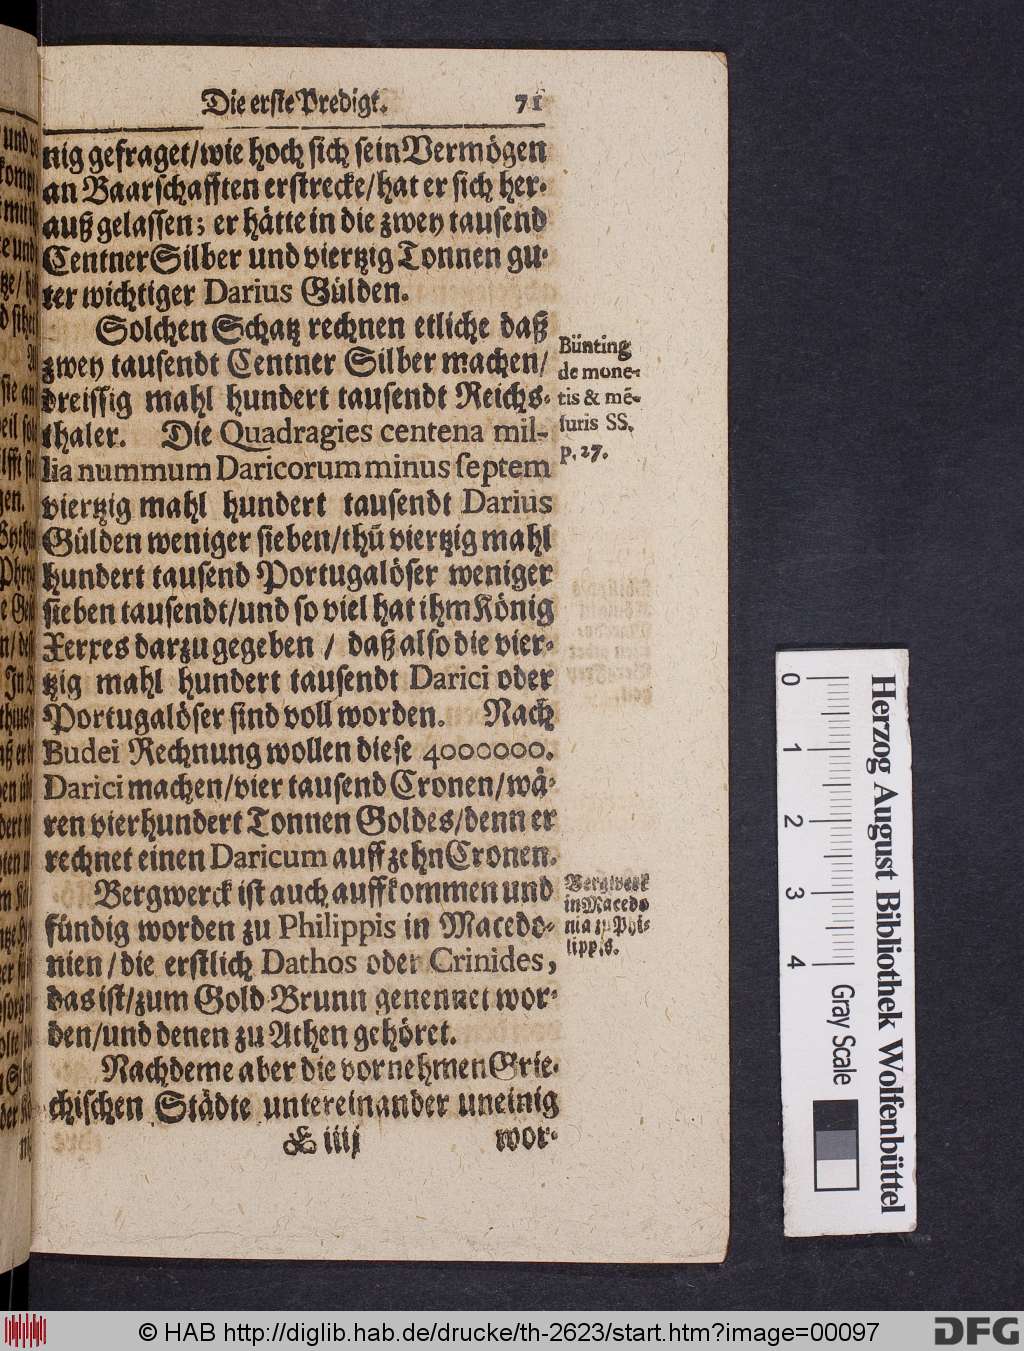 Die erste Predigt. 71
nig gefraget/wie hoch sich sein Vermögen
an Baarschafften erstrecke/hat er sich her-
auß gelassen; er hätte in die zwey tausend
Centner Silber und viertzig Tonnen gu-
ter wichtiger Darius Gülden.
Solchen Schatz rechnen etliche daß
zwey tausendt Centner Silber machen/
dreissig mahl hundert tausendt Reichs-
thaler. Die Quadragies centena mil-
lia nummum Daricorum minus septem
viertzig mahl hundert tausendt Darius
Gülden weniger sieben/thū viertzig mahl
hundert tausend Portugalöser weniger
sieben tausendt/und so viel hat ihm König
Xerxes darzu gegeben / daß also die vier-
tzig mahl hundert tausendt Darici oder
Portugalöser sind voll worden. Nach
Budei Rechnung wollen diese 4000000.
Darici machen/vier tausend Cronen/wä-
ren vierhundert Tonnen Goldes/denn er
rechnet einen Daricum auff zehn Cronen.
Bergwerck ist auch auffkommen und
fündig worden zu Philippis in Macedo-
nien/die erstlich Dathos oder Crinides,
das ist/zum Gold-Brunn genennet wor-
den/und denen zu Athen gehöret.
Nachdeme aber die vornehmen Grie-
chischen Städte untereinander uneinig
E iiij wor-
Bünting
de mone-
tis & mē-
suris SS.
p. 27.
Bergwerk
in Macedo
nia zu Phi-
lippis.
0 1 2 3 4
Gray Scale
Herzog August Bibliothek Wolfenbüttel
© HAB http://diglib.hab.de/drucke/th-2623/start.htm?image=00097
DFG